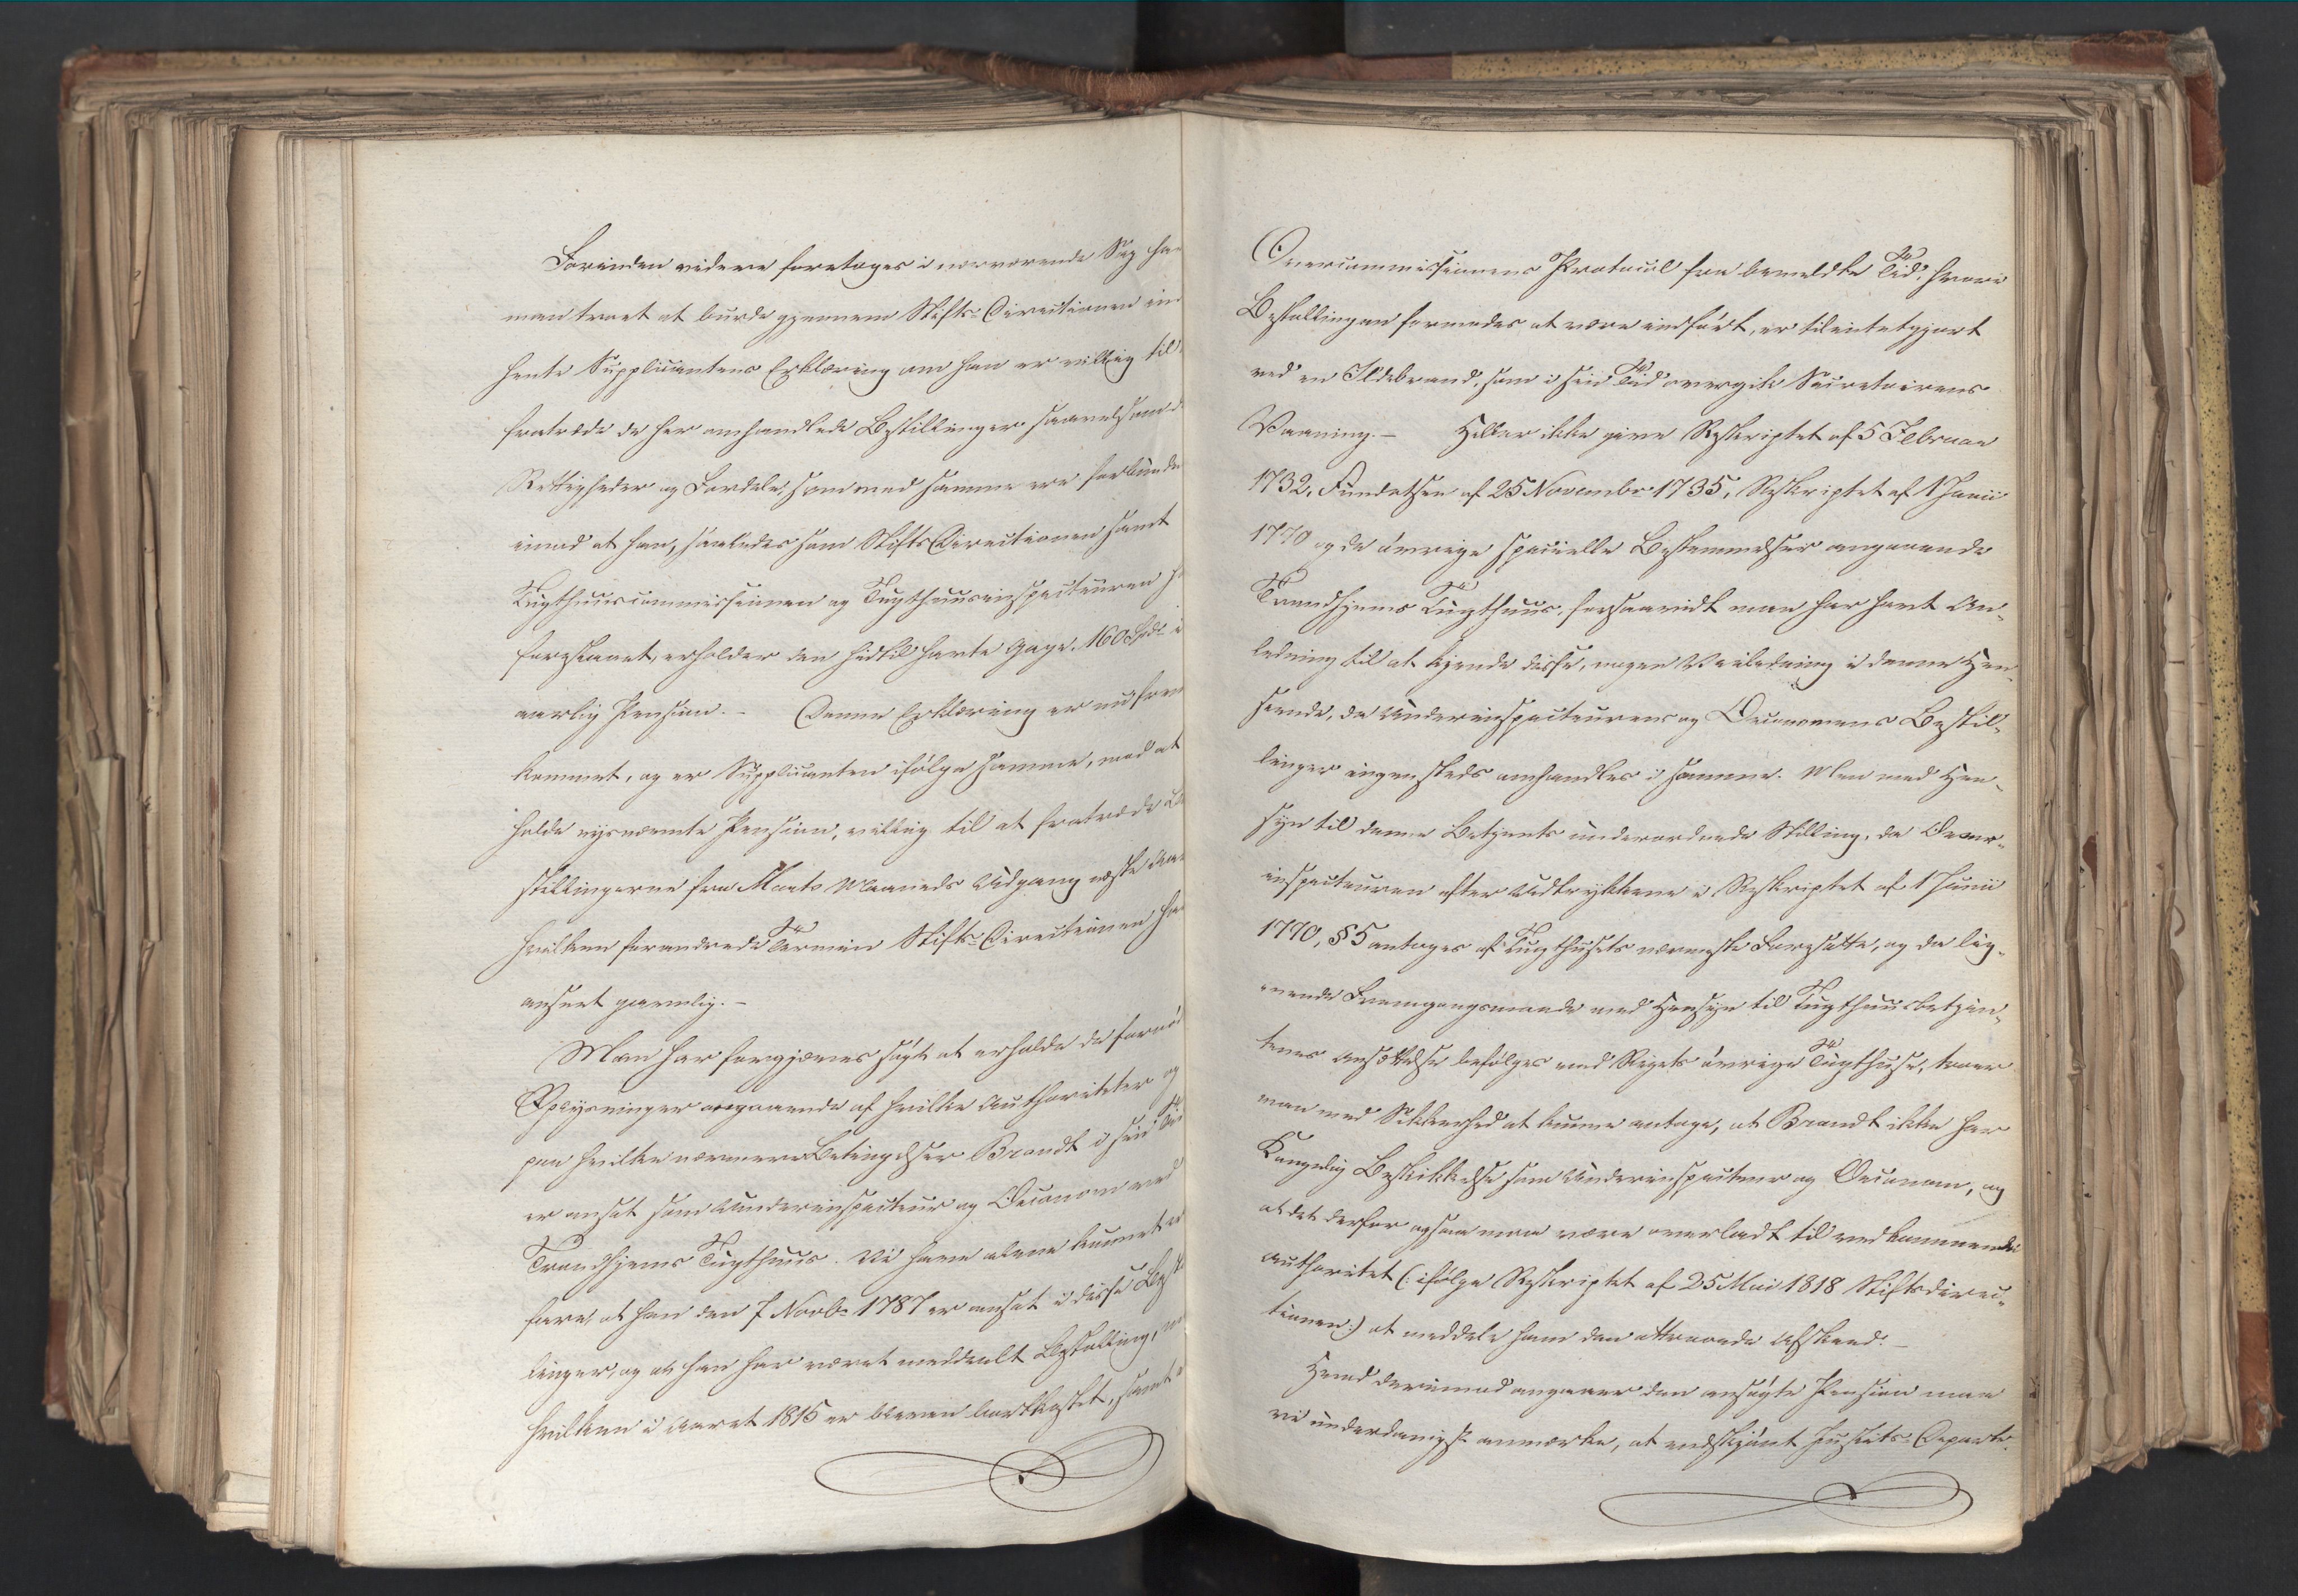 Forinden videre foretages i nærværende Sag ha
man troet at burde gjennem Stifts-Directionen ind
hente Supplicantens Erklæring om han er villig til
fratræde de her omhandlede Bestillinger saavelsom d
Rettigheder og Fordele, som med samme ere forbundn
imod at han, saaledes som StiftsDirectionen samt
Tugthuuscommissionen og Tugthuusinspecteuren h
foreslaaet, erholder den hidtil havte Gage, 160 Spd i
aarlig Pension. – Denne Erklæring er nu frem
kommet, og er Supplicanten ifølge samme, mod at
holde nysnævnte Pension, villig til at fratræde Be
stillingerne fra Marts Maaneds Udgang næste Aar
hvilken forandrede Termin Stifts-Directionen har
anseet gavnlig. –
Man har forgjæves søgt at erholde de fornød
Oplysninger angaaende af hvilke Authoriteter og
paa hvilke nærmere Betingelser Brandt i sin Tid
er ansat som Underinspecteur og Oeconom ved
Trondhjems Tugthuus. Vi have alene kunnet er
fare, at han den 7 Novbr 1787 er ansat i disse Bestil
linger, og at han har været meddeelt Bestalling, m
hvilken i Aaret 1815 er bleven bortkastet, samt
Overcommissionens Protocol fra bemeldte Tid, hvori
Bestallingen formodes at være indført, er tilintetgjort
ved en Ildebrand, som i sin Tid overgik Secretairens
Vaaning. – Heller ikke give Rescriptet af 5 Februar
1732, Fundatsen af 25 November 1735, Rescriptet af 1 Junii
1770 og de øvrige specielle Bestemmelser angaaende
Trondhjems Tugthuus, forsaavidt man har havt An-
ledning til at kjende disse, nogen Veiledning i denne Hen-
seende, da Underinspecteurens og Oeconomens Bestil-
linger ingensteds omhandles i samme. Men med Hen-
syn til denne Betjents underordnede Stilling, da Over-
inspecteuren efter Udtrykkene i Rescriptet af 1 Junii
1770, § 5 antages af Tugthusets nærmeste Foresatte, og da lig-
nende Fremgangsmaade med Hensyn til Tugthuusbetjen-
ternes Ansættelse befølges ved Rigets øvrige Tugthuse, troer
man med Sikkerhed at kunne antage, at Brandt ikke har
Kongelig Beskikkelse som Underinspecteur og Oeconom, og
at det derfor ogsaa maa være overladt til vedkommende
Authoritet (: ifølge Rescriptet af 25 Mai 1818 Stiftsdirec-
tionen :) at meddele ham den attraaede Afsked. –
Hvad derimod angaaer den ansøgte Pension maa
vi underdanigst anmærke, at endskjønt Justits-Departe-